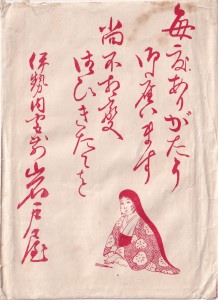 毎度ありがたう
御座います
尚不相変
御ひきたてを
伊勢内宮前
岩戸屋